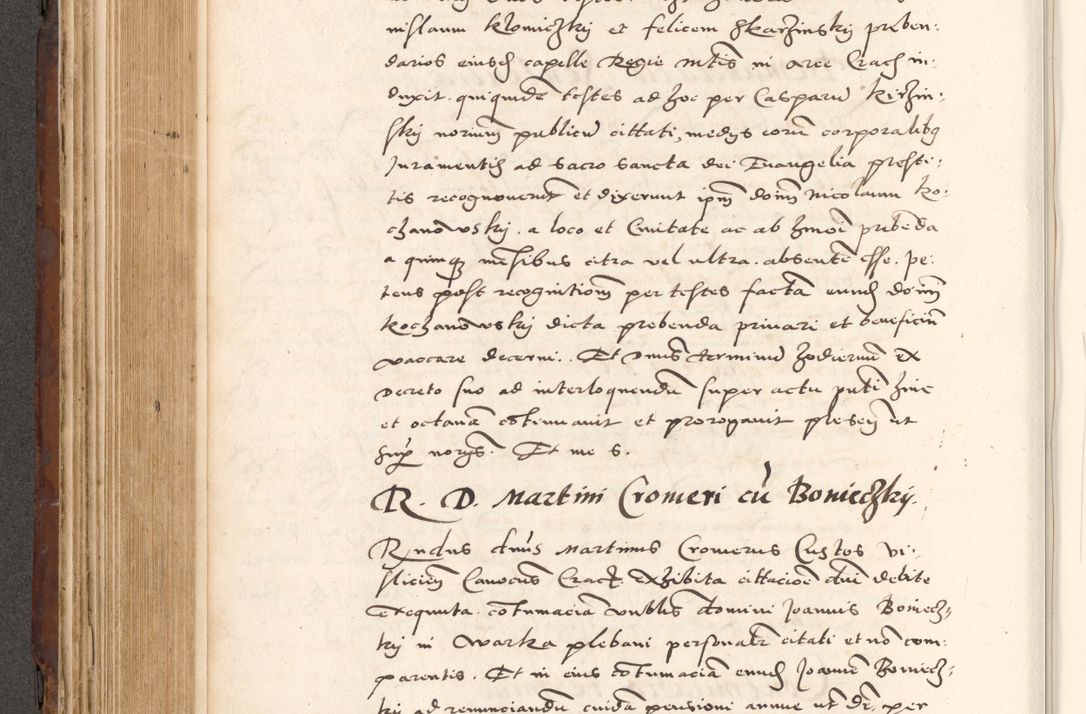 nislaum Kłomiczkij et felicem Skarzinskij preben-
darios eiusd capelle Regie intis in arce Crac in-
duxit. quiquide testes ad hoc per Casparu Kirzin-
skij norium publicu cittati, medys eoru corporalibq
Juramentis ad sacro sancta dei Euangelia presti-
tis recognouerut et dixerunt ipm dom Nicolaum Ko-
chanowskij. a loco et Ciuitate ac ab hmoi prebeda
a quinq mesibus citra vel ultra. absente esse. pe-
tens post recognitiom per testes facta eund dom
Kochanowskij dicta prebenda priuari et beneficiu
vaccare decerni. Et dnus terminu hodiernu ex
Decreto suo ad interloquendu super actu puti hinc
et octaua cotinuauit et prorogauit plesen ut
supr norys. Et me s.
R. D. Martini Cromeri cu Bonieczkij.
Rndus dnus Martinus Cromerus Custos vi-
slicien Canocus Crac. Exhibita cittacioe due debite
Exequuta. cotumacia vnblis domini Joannis Boniecz-
kij in Warka plebani personalr citati et no com-
parentis. Et in eius cotumacia eund Joanne Boniecz-
kij ad renunciandu cuida pensioni annue ut Dr. per